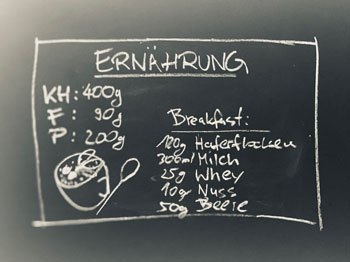 ERNÄHRUNG
KH: 400g
F: 90g
P: 200g
Breakfast:
100g Haferflocken
300ml Milch
25g Whey
10g Nuss
50g Beere